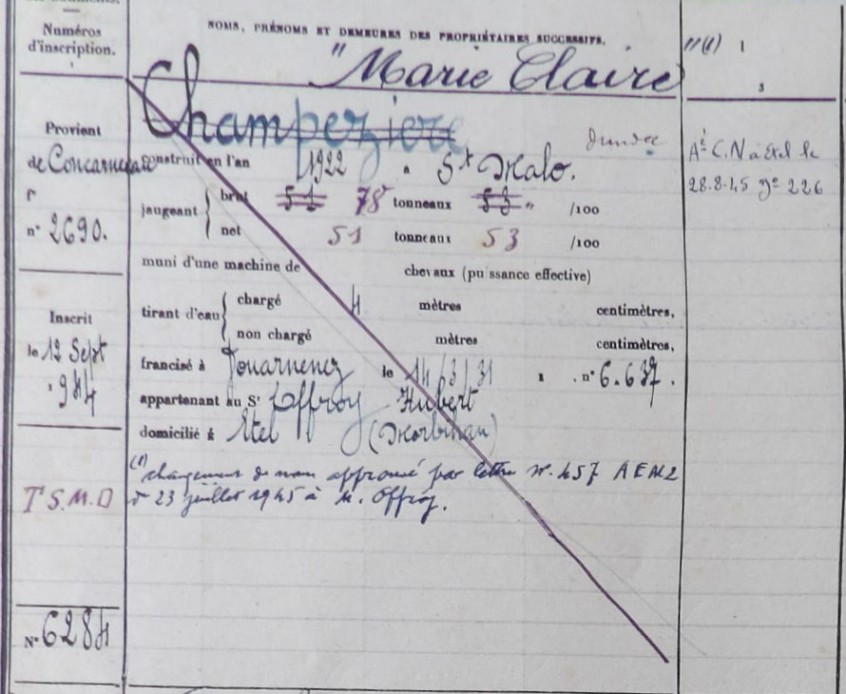 Numéros
d'inscription.
NOMS, PRÉNOMS ET DEMEURES DES PROPRIÉTAIRES SUCCESSIFS.
"Marie Claire
"(1)
Champezière
Dundee
Provient
de Concarneau
F
n° 2690.
construit en l'an 1922 à St Malo.
jaugeant
brut 51 78 tonneaux 53 " /100
net 51 tonneaux 53 /100
muni d'une machine de chevaux (puissance effective)
tirant d'eau
chargé 4 mètres centimètres,
non chargé mètres centimètres,
francisé à Douarnenez le 14/3/31 n° 6.637.
appartenant au Sr Offroy Hubert
domicilié à Etel (Morbihan)
(1) changement de nom approuvé par lettre n°. 457 AEM2
d 23 juillet 1945 à M. Offroy.
Inscrit
le 12 Sept
1944
T.S.M.D
N° 6284
Aé C.N à Etel le
28.8.45 go 226